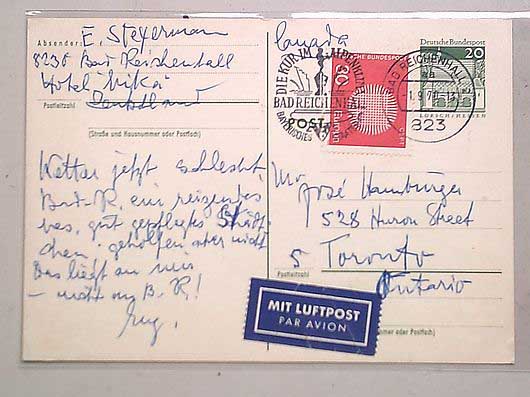 Absender: E Steyermann
8230 Bad Reichenhall
Hotel
Deutschland
Postleitzahl
(Straße und Hausnummer oder Postfach)
Wetter jetzt schlecht,
Bad-R. ein reizen
gut gepflegtes Städt-
chen, geholfen aber nicht
Das liegt an mir
– nicht an B.R.!
Canada
DIE KUR IM ALPENKLIMA
BAD REICHENHALL
BAYERISCHES STAATSBAD
DEUTSCHE BUNDESPOST
30
CEPT
Deutsche Bundespost
20
LORSCH/HESSEN
BAD REICHENHALL
1.9.70
823
Mr José Hamburger
528 Huron Street
5 Toronto
Postleitzahl
Ontario
MIT LUFTPOST
PAR AVION
mer oder Postfach)